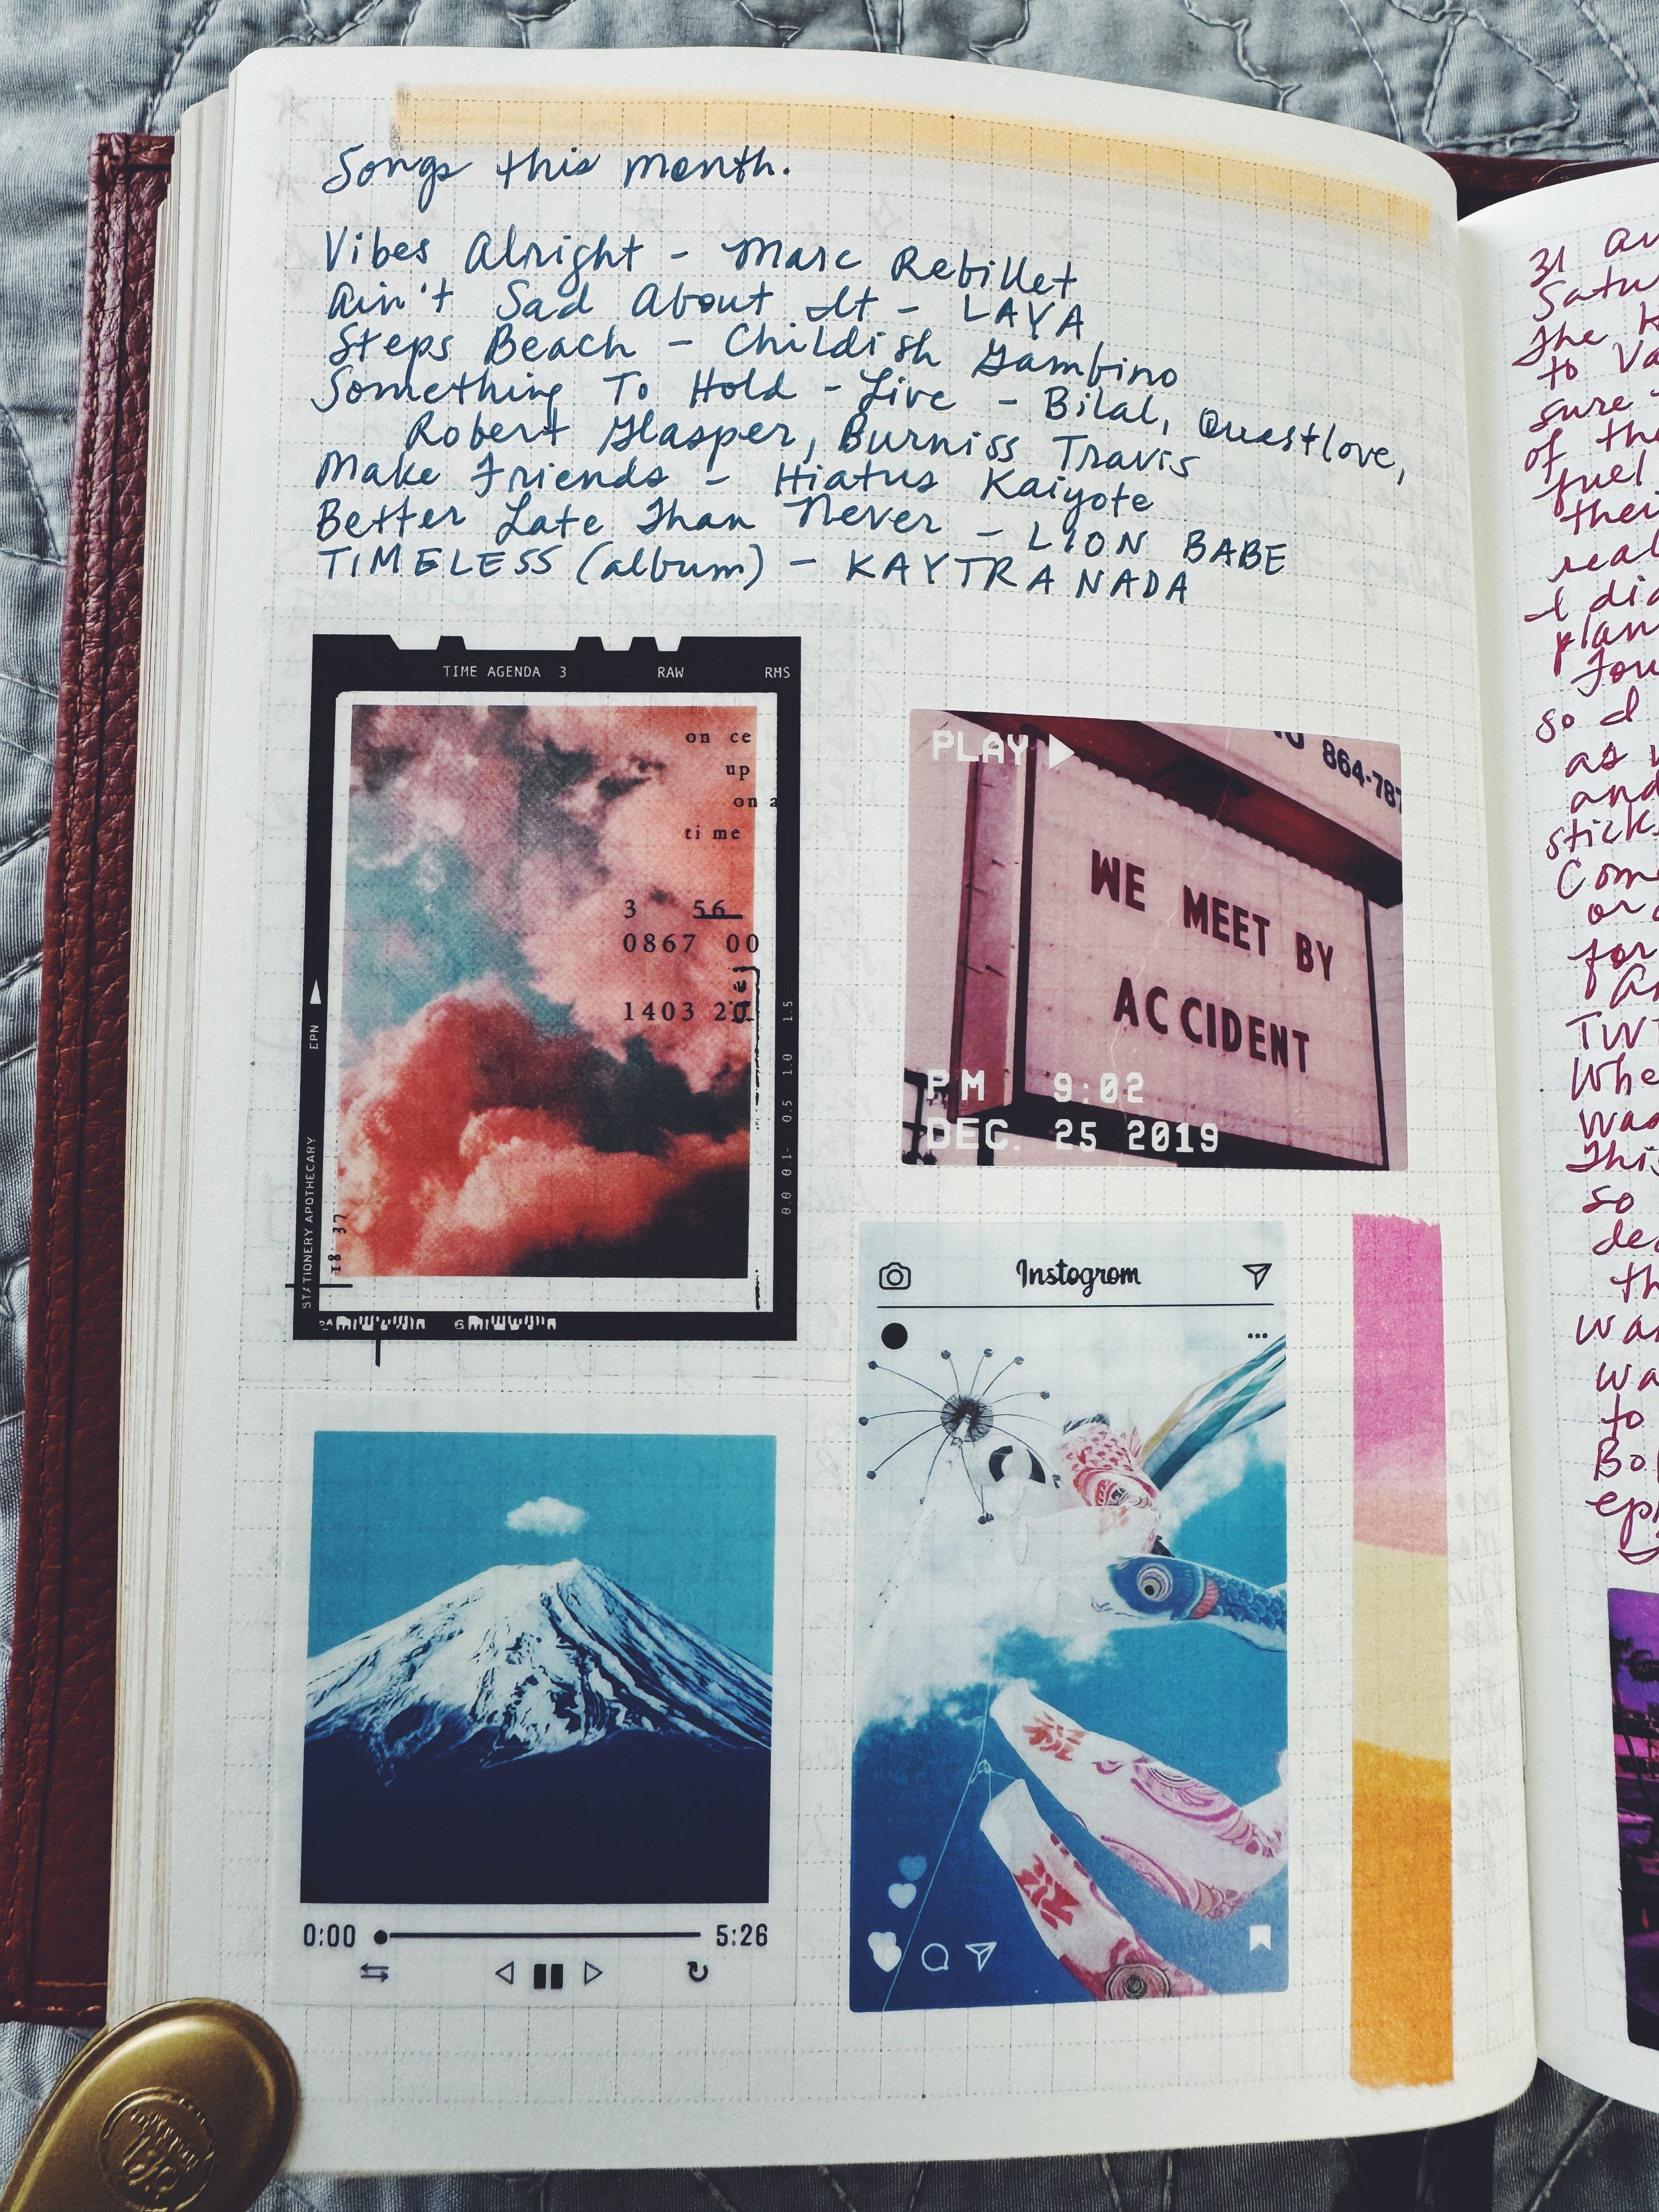 Songs this month.
Vibes Alright - Marc Rebillet
Ain't Sad About It - LAYA
Steps Beach - Childish Gambino
Something To Hold - Live - Bilal, Questlove,
Robert Glasper, Burniss Travis
Make Friends - Hiatus Kaiyote
Better Late Than Never - LION BABE
TIMELESS (album) - KAYTRANADA
TIME AGENDA 3 RAW RMS
on ce
up
on a
ti me
3 56
0867 00
1403 20
EPN
STATIONERY APOTHECARY
18 37
0.0 0.1- 0.5 1.0 1.5
PLAY
864-787
WE MEET BY
ACCIDENT
PM 9:02
DEC. 25 2019
Instogrom
祝
祝
0:00 5:26
31
Satu
The K
to Va
sure
of the
fuel
thei
real
I did
plan
Fou
so I
as w
and
stick
Come
or
for
TWT
Whe
was
This
so
de
th
wa
wa
to
Bo
ep